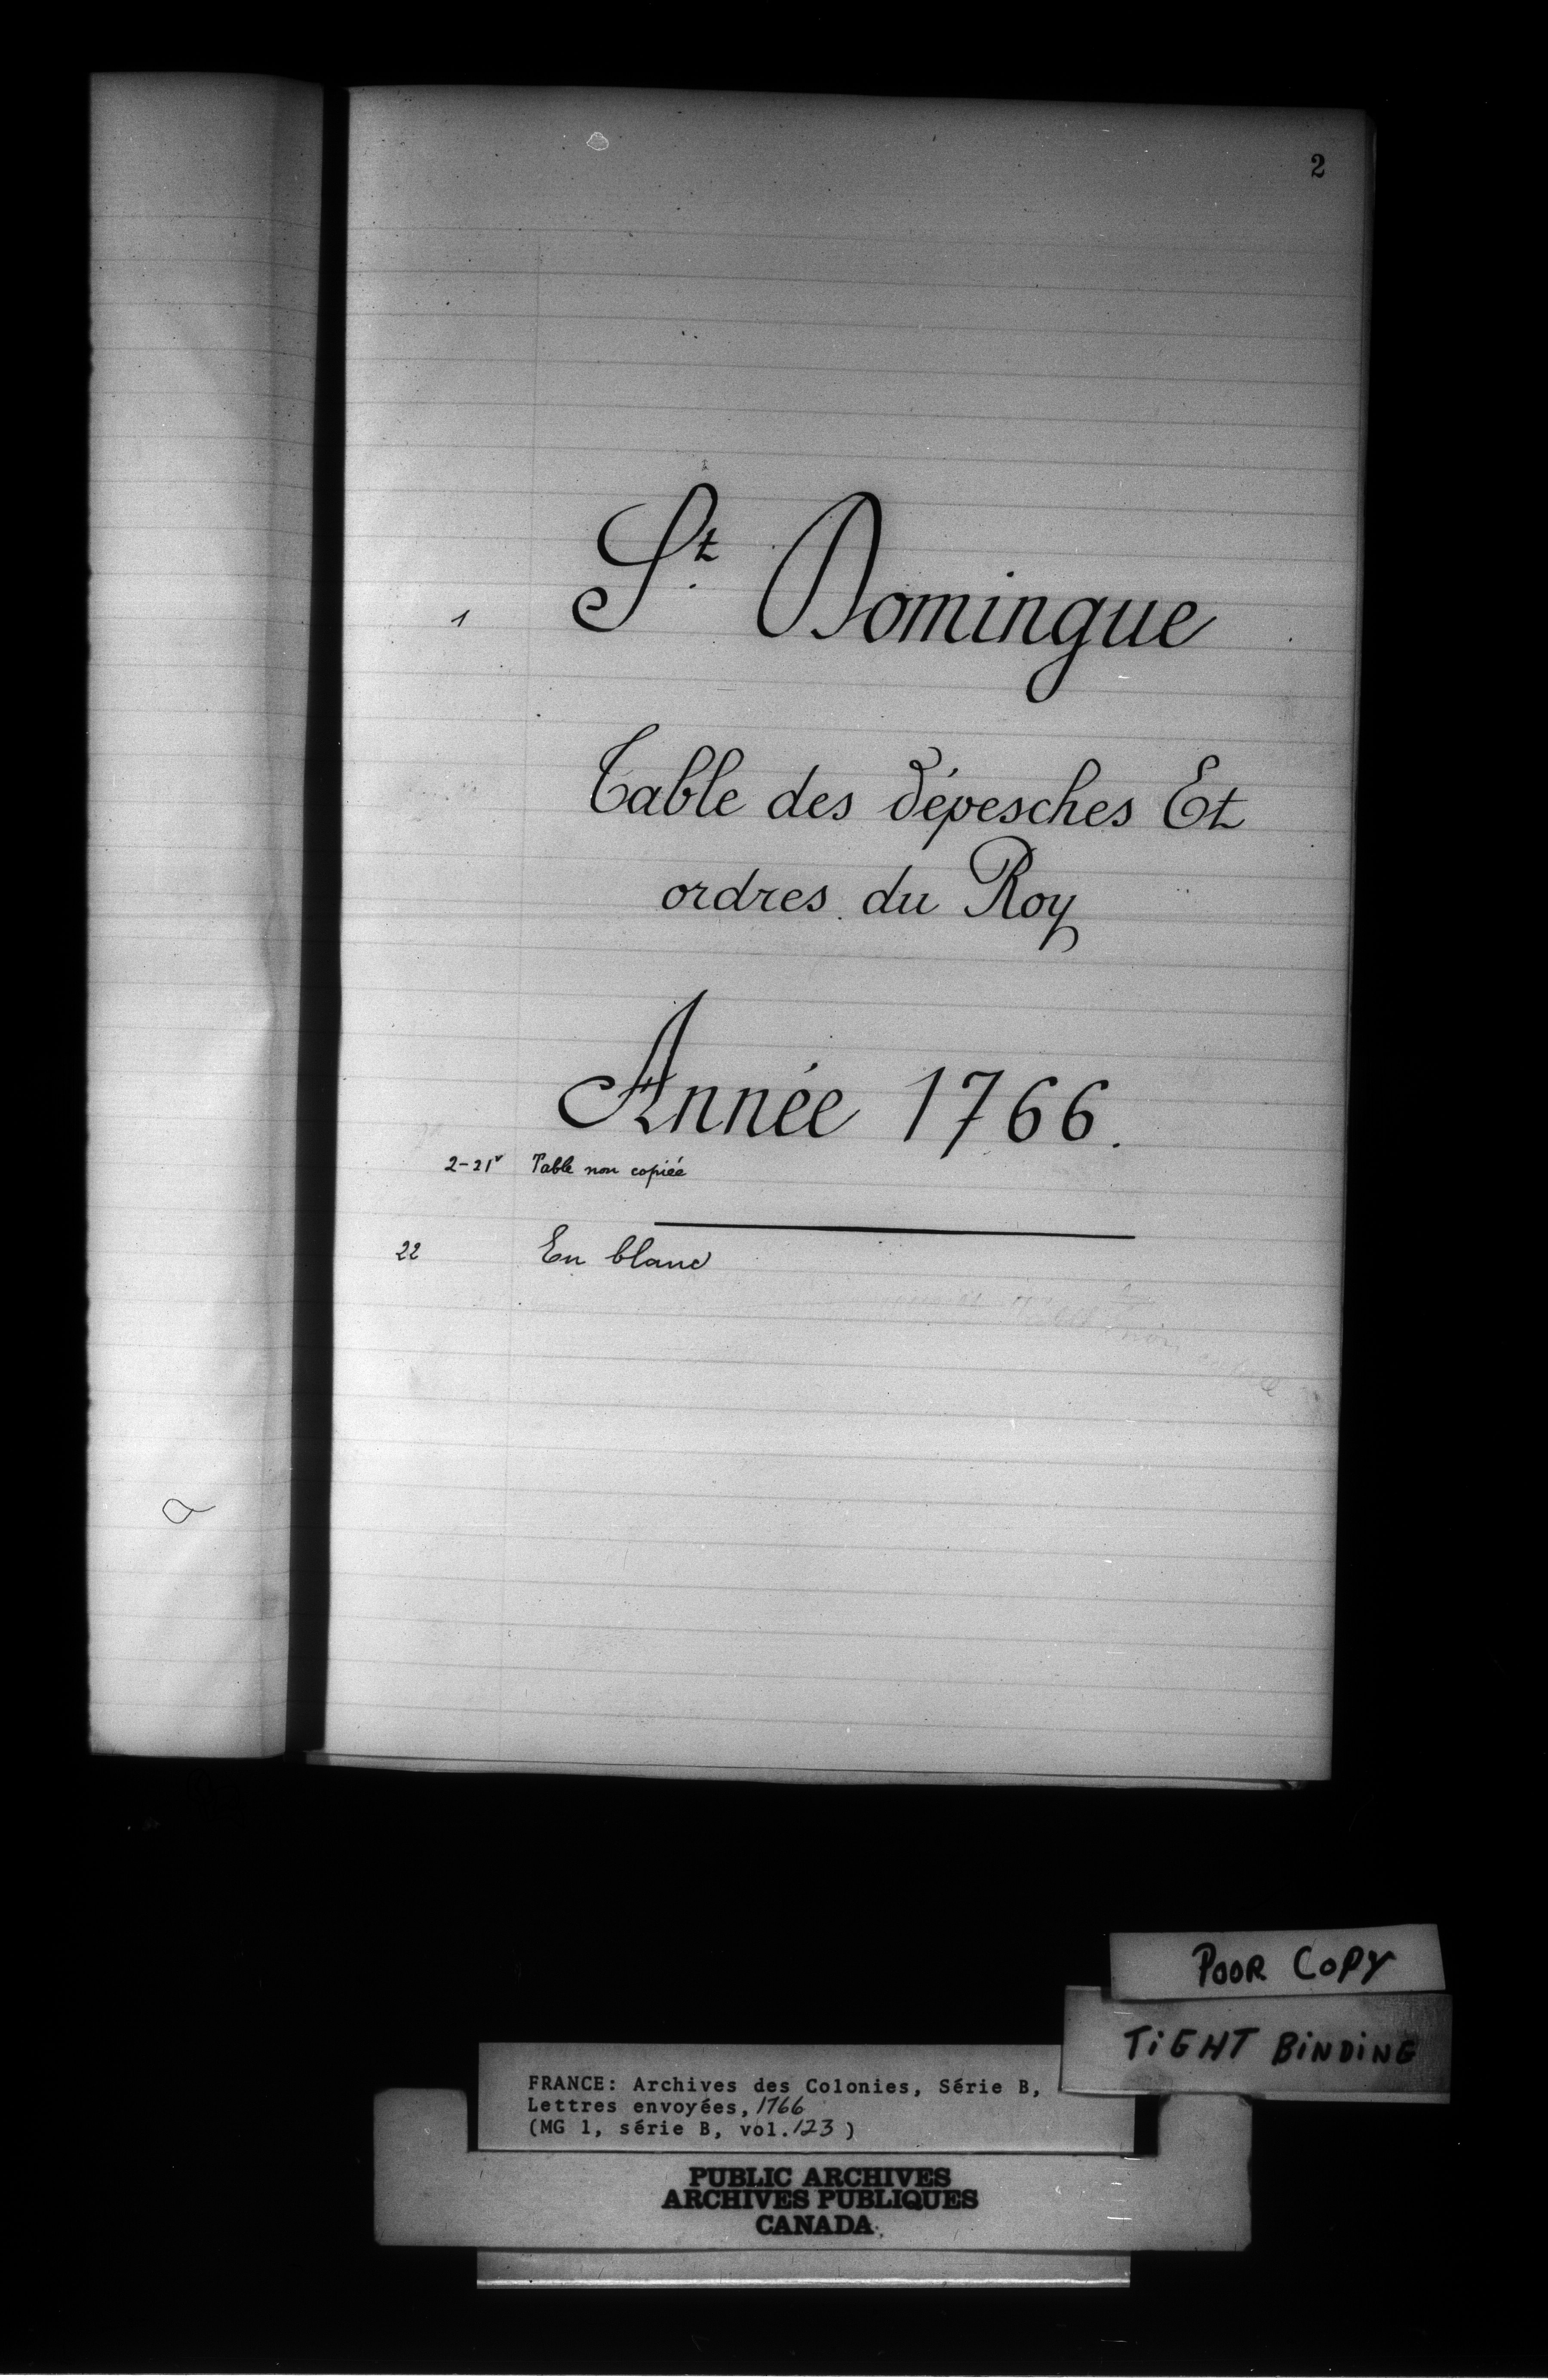 2
1 St. Domingue
Table des dépesches Et
ordres du Roy
Année 1766.
2-21v Table non copiée
22 En blanc
POOR COPY
TIGHT BINDING
FRANCE: Archives des Colonies, Série B,
Lettres envoyées, 1766
(MG 1, série B, vol. 123)
PUBLIC ARCHIVES
ARCHIVES PUBLIQUES
CANADA